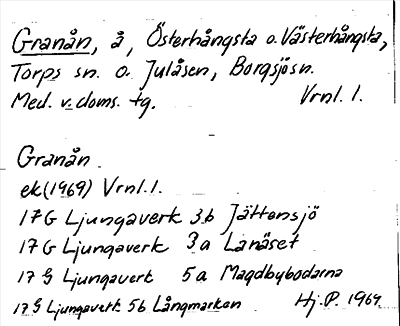 Granån, å, Österhångsta o. Västerhångsta,
Torps sn. o. Julåsen, Borgsjö sn.
Med. v. doms. tg. Vrnl. l.
Granån
ek (1969) Vrnl. l.
17G Ljungaverk 3b Jättensjö
17G Ljungaverk 3a Lanäset
17G Ljungaverk 5a Magdbybodarna
17G Ljungaverk 5b Långmarken Hj. P. 1969